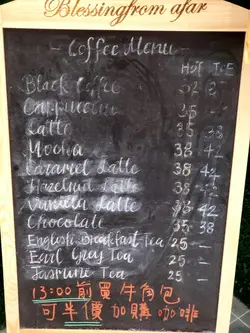 Blessingfrom afar
- Coffee Menu -
HOT ICE
Black Coffee 32 35
Cappuccino 35 -
Latte 35 38
Mocha 38 42
Caramel Latte 38 42
Hazelnut Latte 38 42
Vanilla Latte 38 42
Chocolate 35 38
English Breakfast Tea 25 -
Earl Grey Tea 25 -
Jasmine Tea 25 -
13:00 前買牛角包
可半價加購咖啡